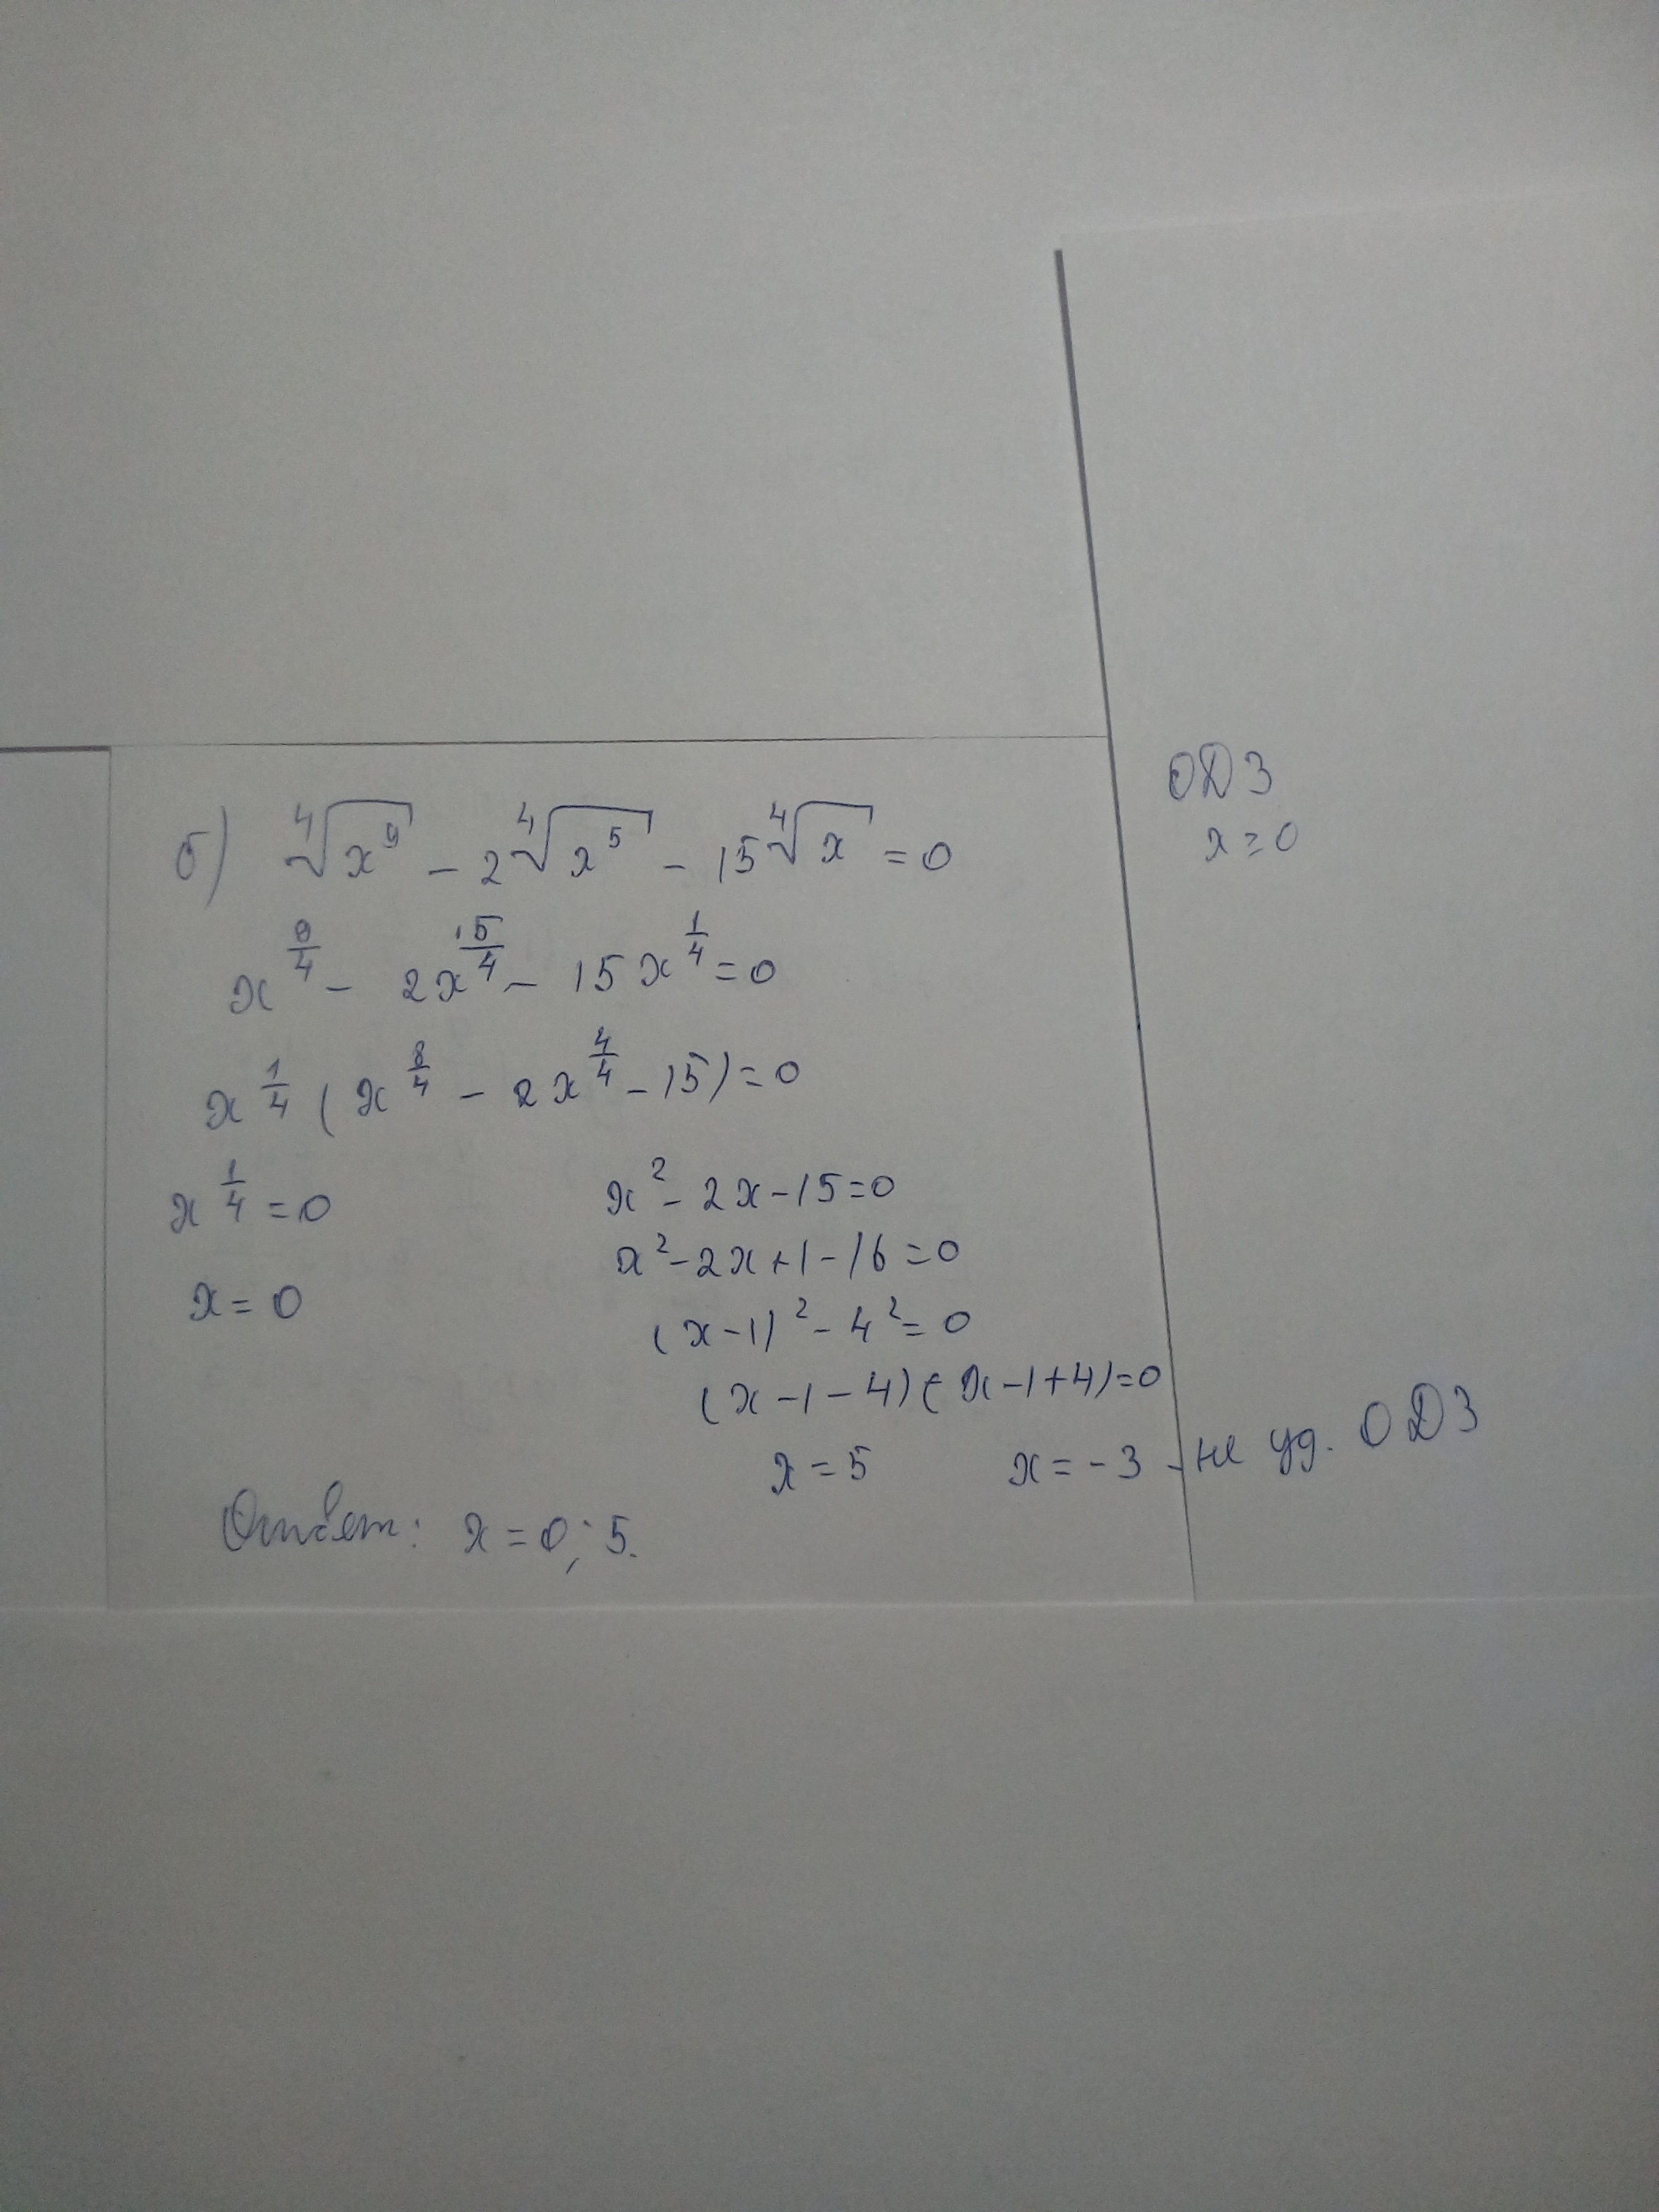 б) ⁴√x⁹ - 2 ⁴√x⁵ - 15 ⁴√x = 0
ОДЗ
x ≥ 0
x^(9/4) - 2x^(5/4) - 15x^(1/4) = 0
x^(1/4) (x^(8/4) - 2x^(4/4) - 15) = 0
x^(1/4) = 0
x = 0
x² - 2x - 15 = 0
x² - 2x + 1 - 16 = 0
(x - 1)² - 4² = 0
(x - 1 - 4)(x - 1 + 4) = 0
x = 5 x = -3 - не уд. ОДЗ
Ответ: x = 0; 5.